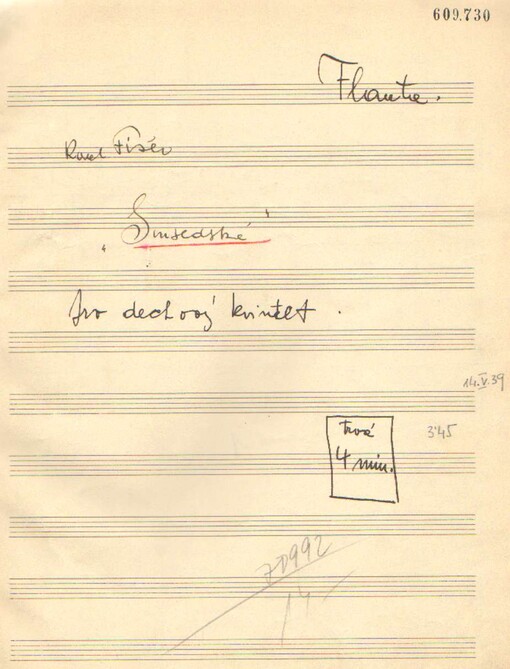 609.730
Flauta.
Karel Fišer
„Sousedské"
pro dechový kvintet.
14.V.39
trvá
3'45
4 min.
14